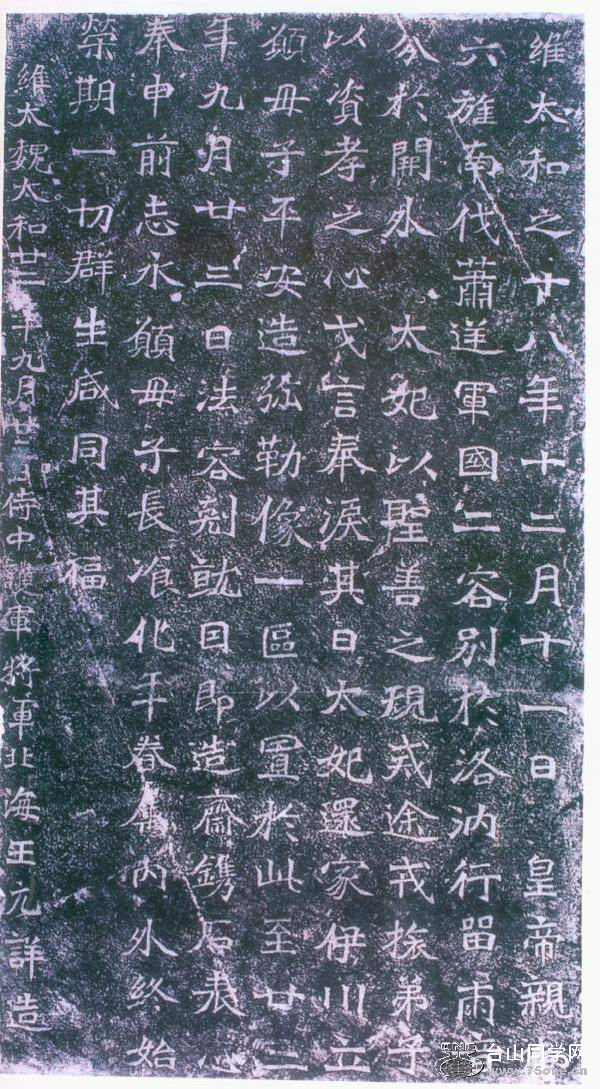 維太和之十八年十二月十一日 皇帝親
六旌南伐蕭逆軍國二容別於洛汭行留兩
分於闕外 太妃以聖善之規戒途戎旅弟子
以資孝之心戈言奉淚其日太妃還家伊川立
願母子平安造弥勒像一區以置於此至廿二
年九月廿三日法容剋就因即造齋鐫石表心
奉申前志永願母子長飡化年眷屬內外終始
榮期一切群生咸同其福
維大魏太和廿二年九月廿三日侍中護軍將軍北海王元詳造
台山同学网